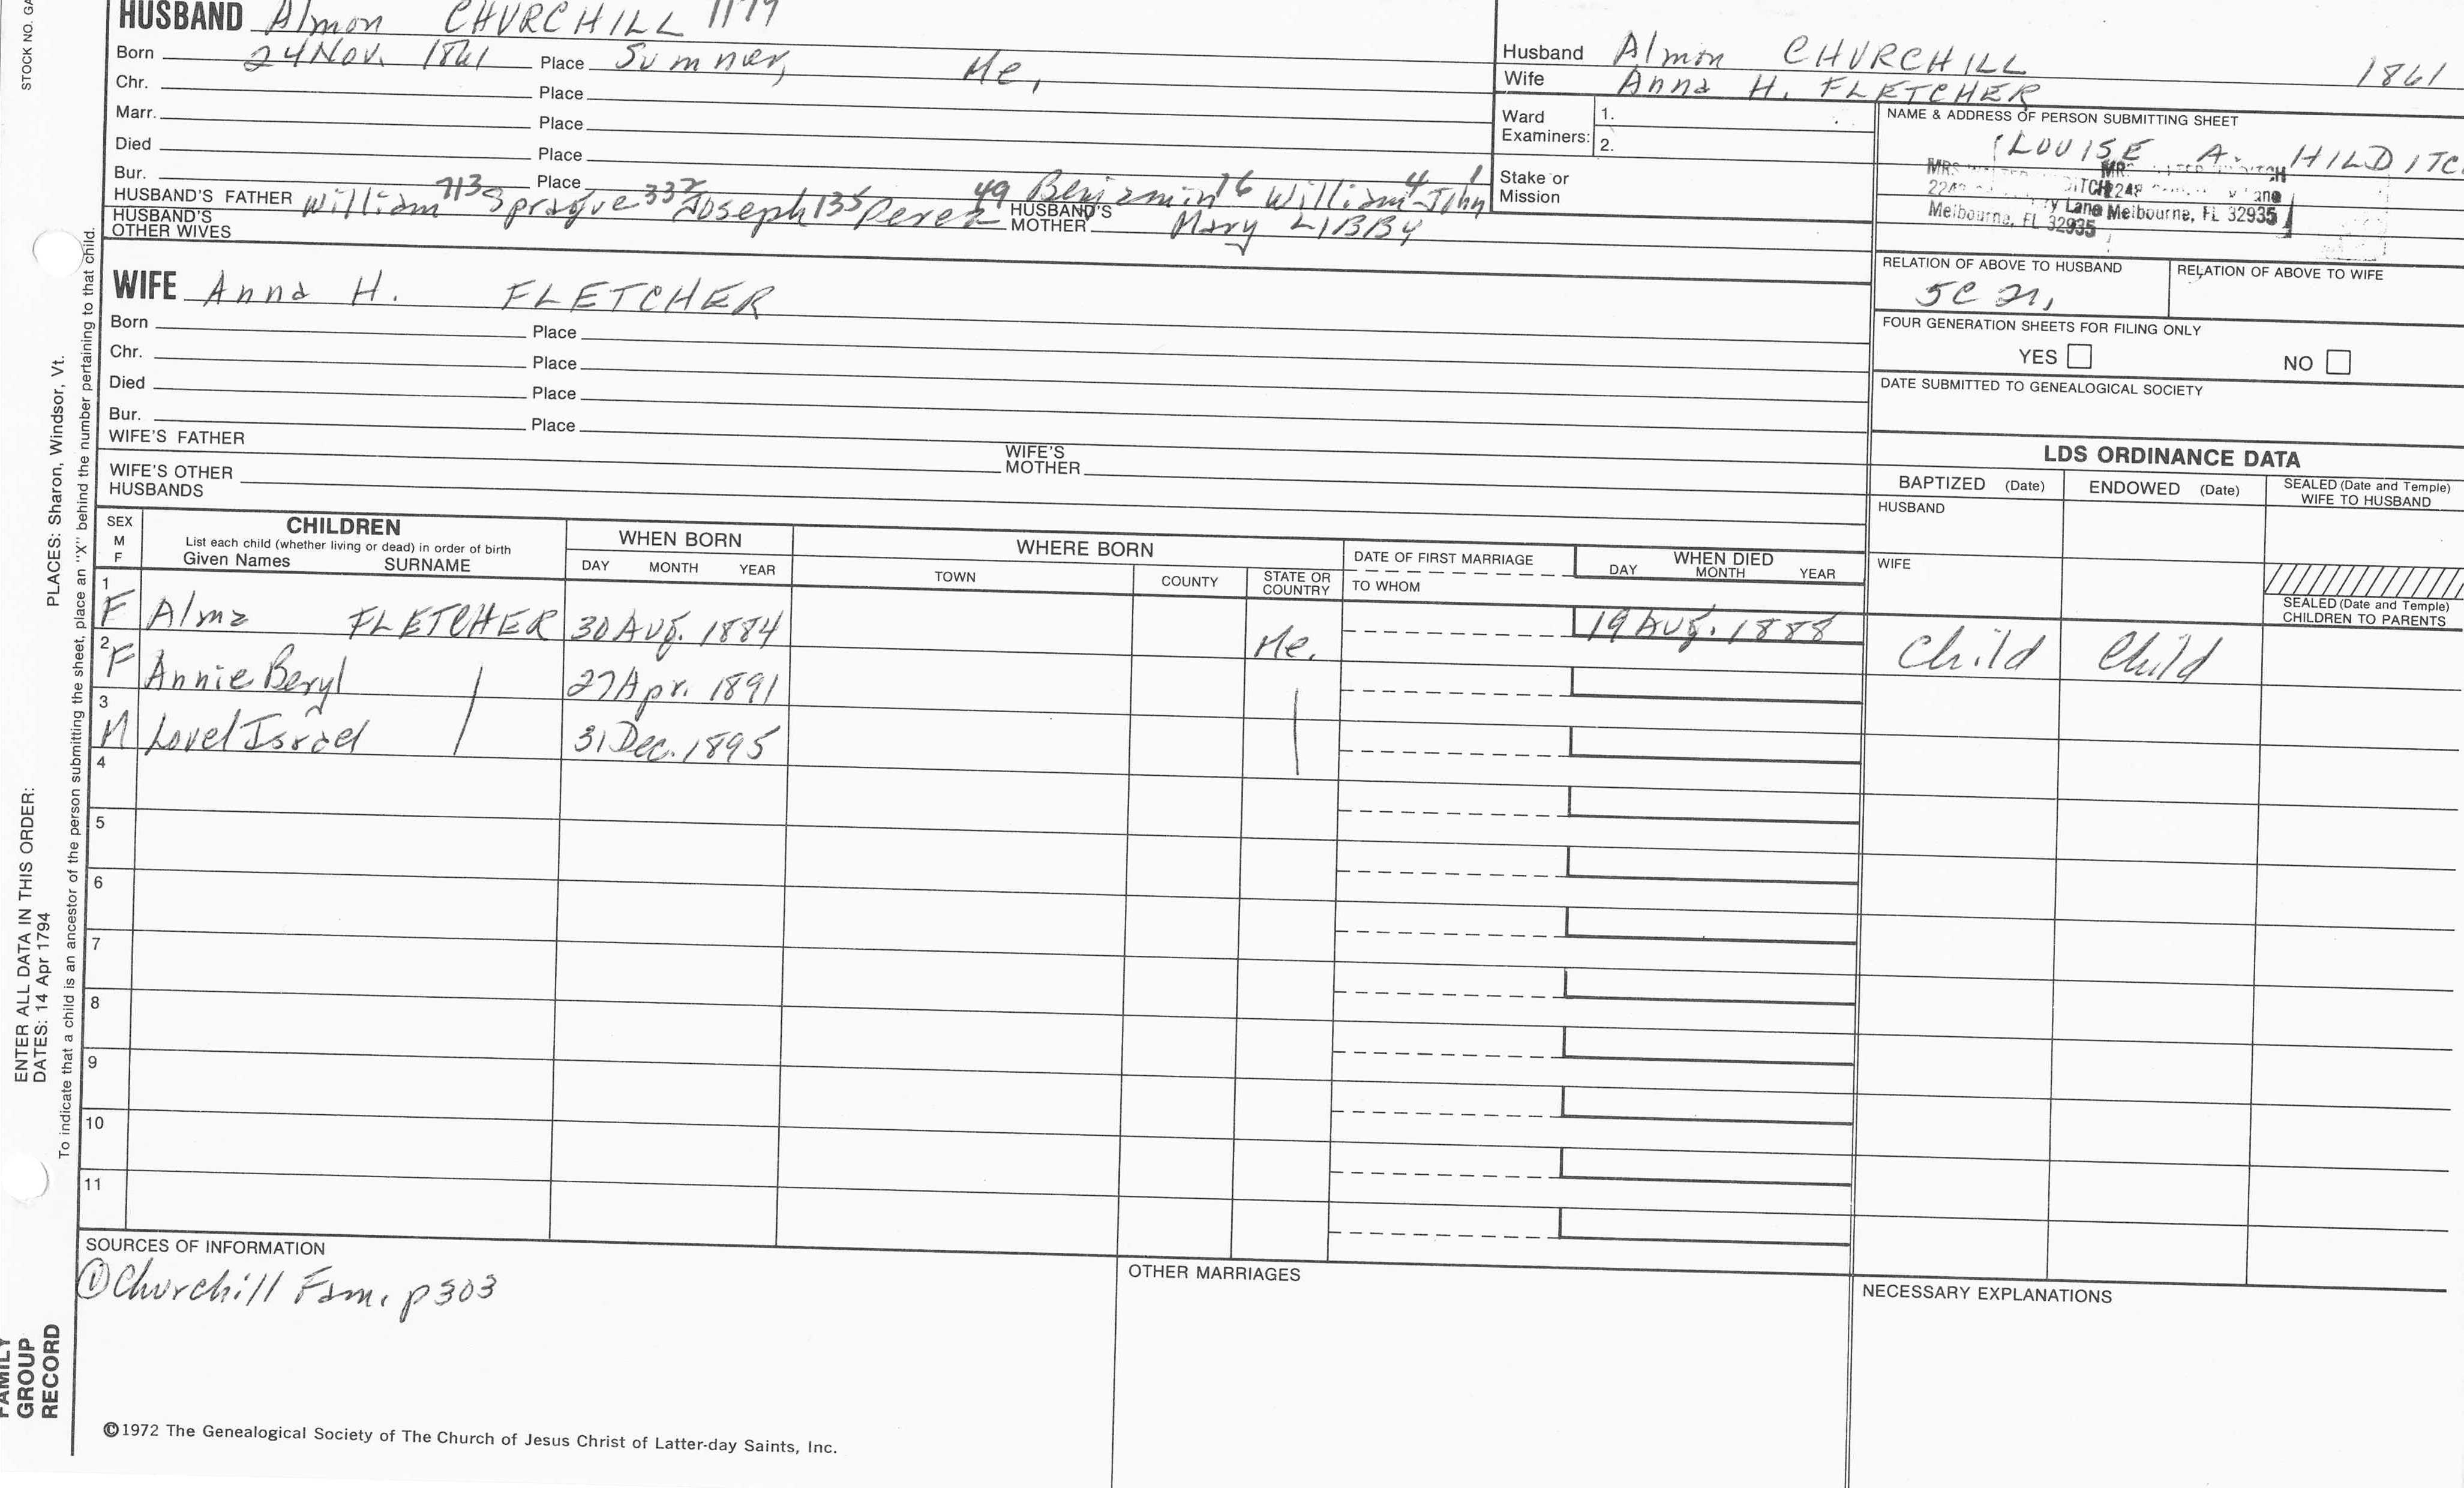 STOCK NO.
HUSBAND Almon CHURCHILL
Born 24 Nov. 1861 Place Sumner, Me,
Chr. Place
Marr. Place
Died Place
Bur. Place
HUSBAND'S FATHER William 713 Sprague 332 Joseph 135 Perez 49 Benjamin 16 William 4 John 1
HUSBAND'S OTHER WIVES
HUSBAND'S MOTHER Mary LIBBY
Husband Almon CHURCHILL 1861
Wife Anna H. FLETCHER
Ward Examiners: 1.
2.
Stake or Mission
NAME & ADDRESS OF PERSON SUBMITTING SHEET
LOUISE A. HILDITC
Lane Melbourne, FL 32935
Melbourne, FL 32935
RELATION OF ABOVE TO HUSBAND
RELATION OF ABOVE TO WIFE
FOUR GENERATION SHEETS FOR FILING ONLY
YES NO
DATE SUBMITTED TO GENEALOGICAL SOCIETY
WIFE Anna H. FLETCHER
Born Place
Chr. Place
Died Place
Bur. Place
WIFE'S FATHER
WIFE'S MOTHER
WIFE'S OTHER HUSBANDS
LDS ORDINANCE DATA
BAPTIZED (Date) ENDOWED (Date) SEALED (Date and Temple) WIFE TO HUSBAND
HUSBAND
WIFE
SEALED (Date and Temple) CHILDREN TO PARENTS
SEX M F
CHILDREN
List each child (whether living or dead) in order of birth
Given Names SURNAME
WHEN BORN
DAY MONTH YEAR
WHERE BORN
TOWN COUNTY STATE OR COUNTRY
DATE OF FIRST MARRIAGE
TO WHOM
WHEN DIED
DAY MONTH YEAR
1 F Alma FLETCHER 30 Aug. 1884 Me. 19 Aug. 1888 Child Child
2 F Annie Beryl 27 Apr. 1891
3 M Lovel Israel 31 Dec. 1895
4
5
6
7
8
9
10
11
SOURCES OF INFORMATION
① Churchill Fam. p 303
OTHER MARRIAGES
NECESSARY EXPLANATIONS
©1972 The Genealogical Society of The Church of Jesus Christ of Latter-day Saints, Inc.
ENTER ALL DATA IN THIS ORDER:
DATES: 14 Apr 1794
PLACES: Sharon, Windsor, Vt.
To indicate that a child is an ancestor of the person submitting the sheet, place an "X" behind the number pertaining to that child.
FAMILY
GROUP
RECORD